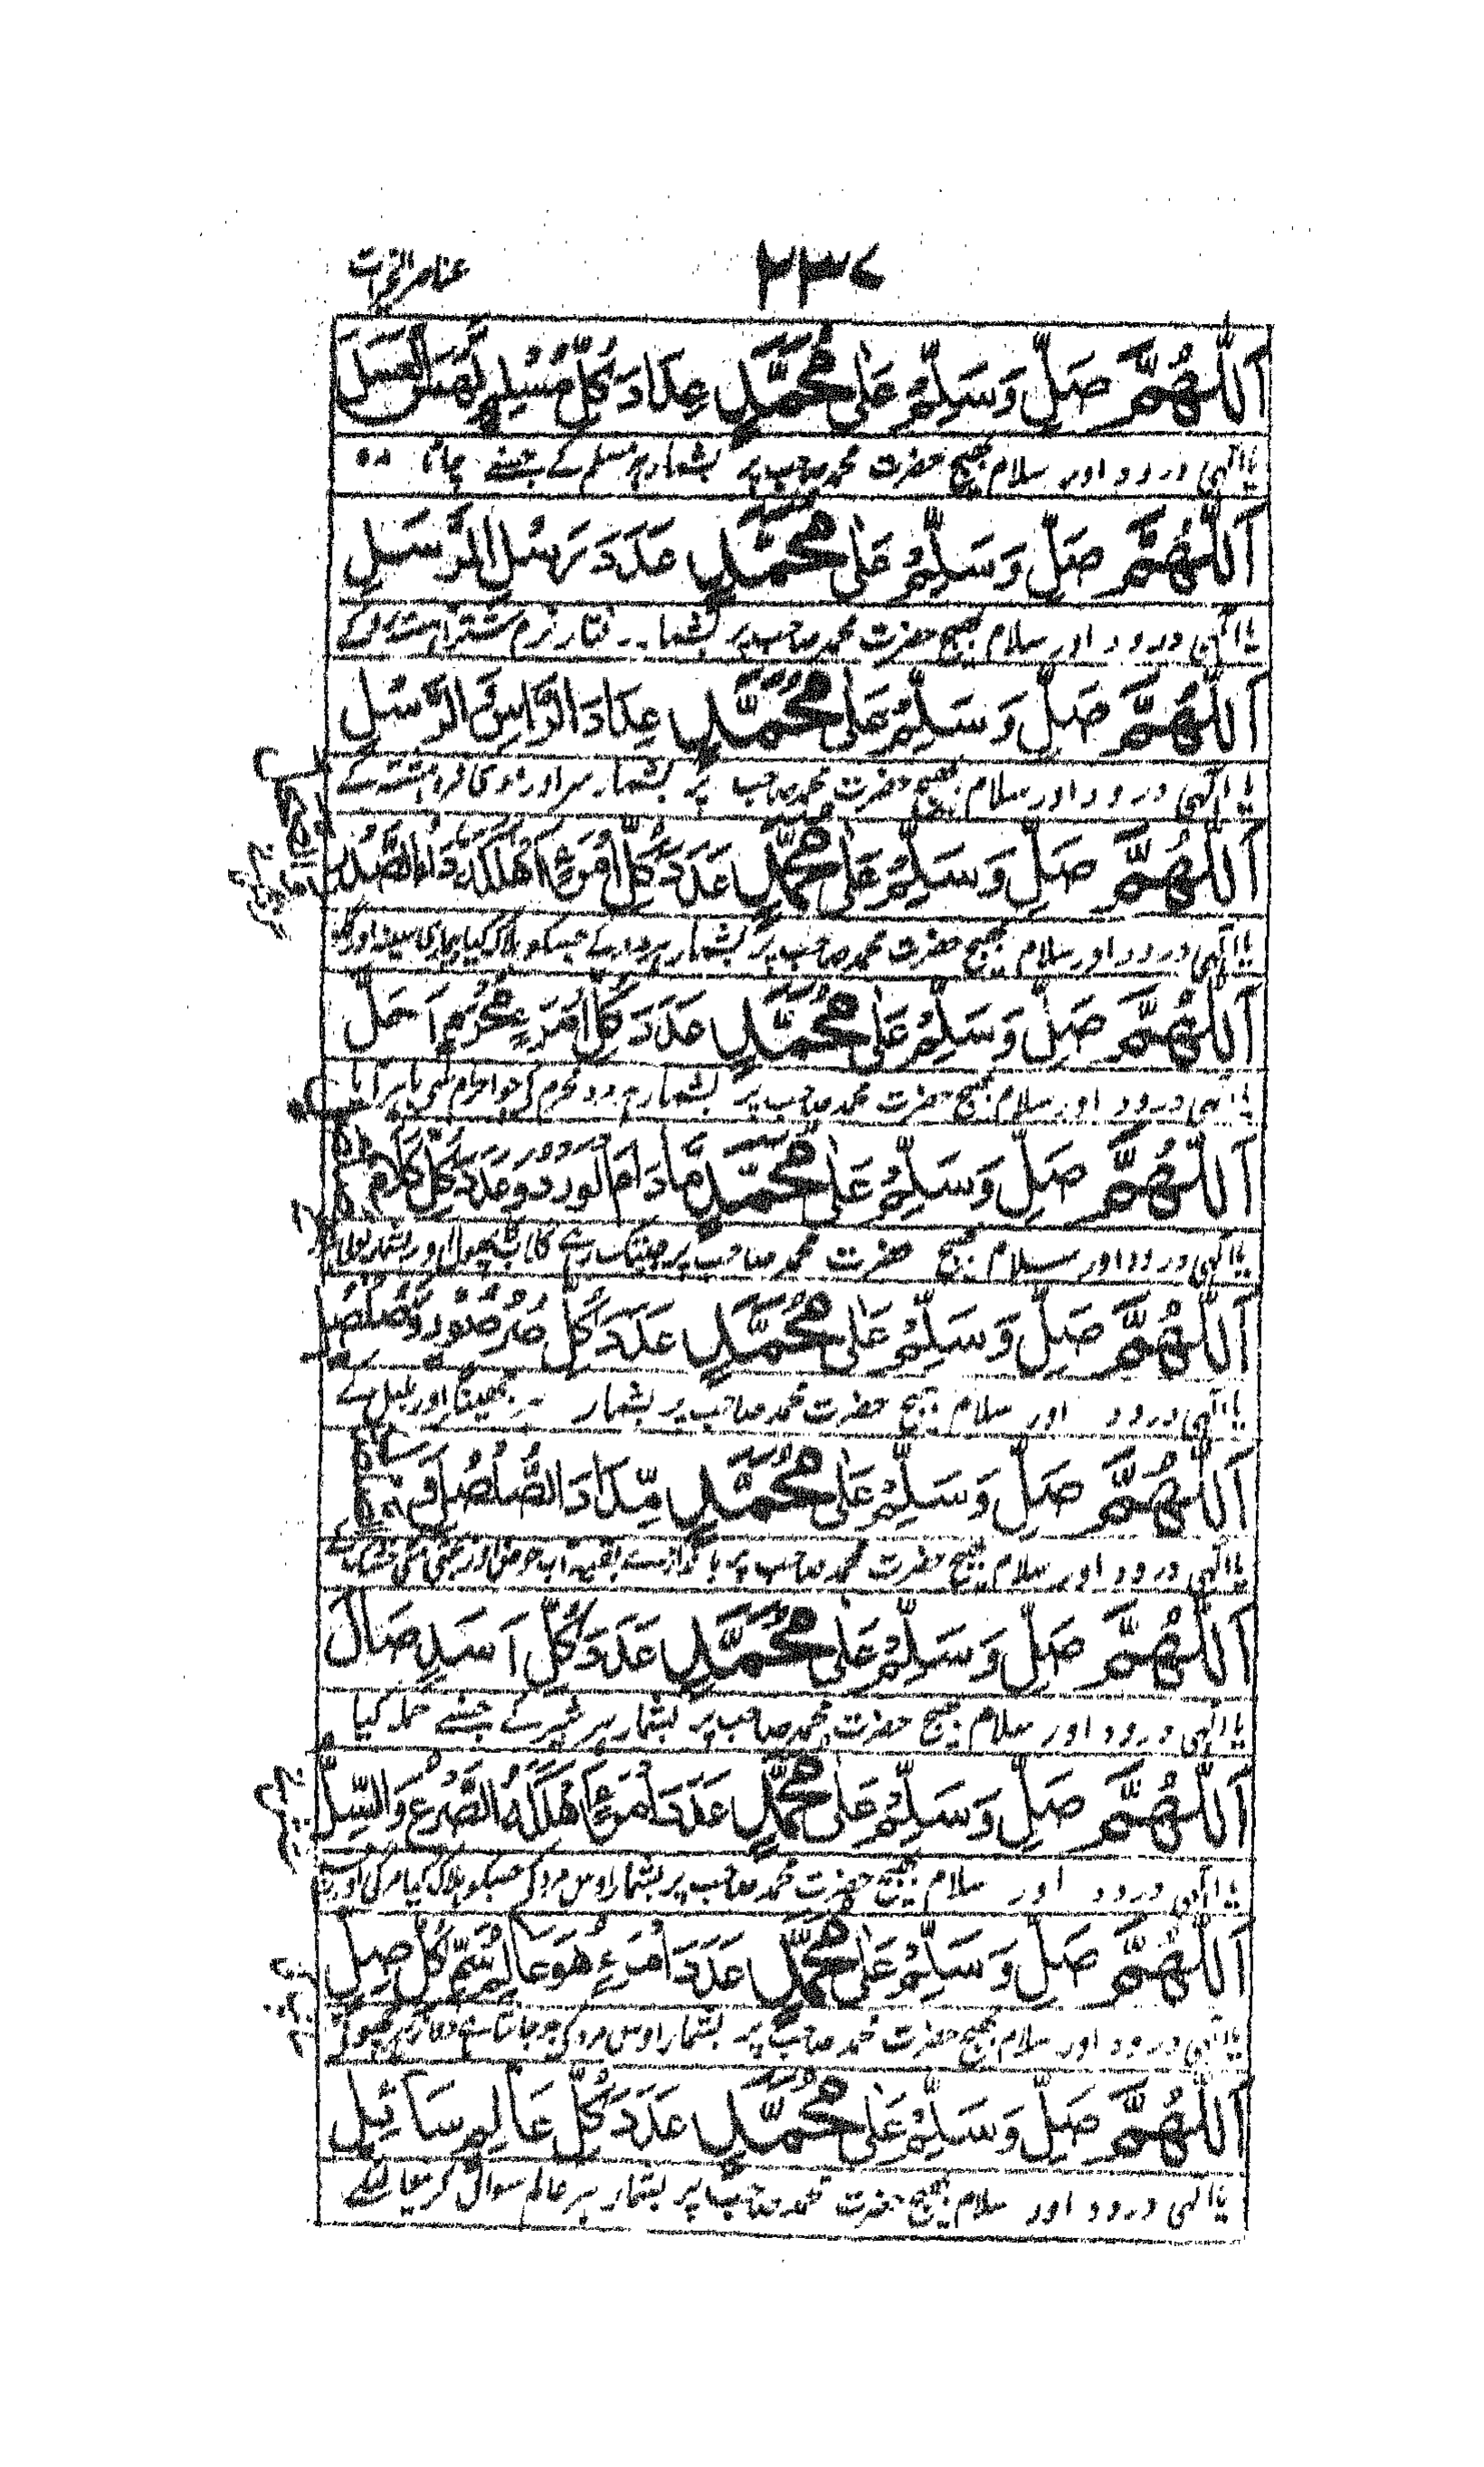 ۲۳۷
عناصر الخیرات
اَللّٰهُمَّ صَلِّ وَسَلِّمْ عَلٰى مُحَمَّدٍ عِدَادَ كُلِّ مُسْلِمٍ العَسَلَ
یا الٰہی درود اور سلام بھیج حضرت محمد صاحب پر بشمار ہر مسلم کے جسنے
اَللّٰهُمَّ صَلِّ وَسَلِّمْ عَلٰى مُحَمَّدٍ عَدَدَ رَسْلِ الرَّسَلِ
یا الٰہی درود اور سلام بھیج حضرت محمد صاحب پر بشمار رفتار نرم کے
اَللّٰهُمَّ صَلِّ وَسَلِّمْ عَلٰى مُحَمَّدٍ عِدَادَ الرَّاسِ وَالرَّسَلِ
یا الٰہی درود اور سلام بھیج حضرت محمد صاحب پر بشمار سر اور کے
اَللّٰهُمَّ صَلِّ وَسَلِّمْ عَلٰى مُحَمَّدٍ عَدَدَ كُلِّ امْرَءٍ اَهْلَكَهٗ
یا الٰہی درود اور سلام بھیج حضرت محمد صاحب پر بشمار ہر مرد کے جسکو ہلاک کیا بیماری سینہ اور
اَللّٰهُمَّ صَلِّ وَسَلِّمْ عَلٰى مُحَمَّدٍ عَدَدَ كُلِّ امْرَءٍ مُحْرِمٍ اَحَلَّ
یا الٰہی درود اور سلام بھیج حضرت محمد صاحب پر بشمار ہر مرد محرم کی جو احرام سی باہر آیا
اَللّٰهُمَّ صَلِّ وَسَلِّمْ عَلٰى مُحَمَّدٍ مَادَامَ الْوَرْدُ وَعَدَدَ كُلِّ
یا الٰہی درود اور سلام بھیج حضرت محمد صاحب پر جبتک رہے گلاب پھول اور بشمار
اَللّٰهُمَّ صَلِّ وَسَلِّمْ عَلٰى مُحَمَّدٍ عَدَدَ كُلِّ صُرْصُوْرٍ وَصُلْصُلٍ
یا الٰہی درود اور سلام بھیج حضرت محمد صاحب پر بشمار ہر جھینگر اور بلبل کے
اَللّٰهُمَّ صَلِّ وَسَلِّمْ عَلٰى مُحَمَّدٍ مِدَادَ الصُّلْصُلِ
یا الٰہی درود اور سلام بھیج حضرت محمد صاحب پر بقیہ آب حوض
اَللّٰهُمَّ صَلِّ وَسَلِّمْ عَلٰى مُحَمَّدٍ عَدَدَ كُلِّ اَسَدٍ صَالَ
یا الٰہی درود اور سلام بھیج حضرت محمد صاحب پر بشمار ہر شیر کے جسنے حملہ کیا
اَللّٰهُمَّ صَلِّ وَسَلِّمْ عَلٰى مُحَمَّدٍ عَدَدَ امْرَءٍ اَهْلَكَهُ الصَّرْعُ وَالسِّلُّ
یا الٰہی درود اور سلام بھیج حضرت محمد صاحب پر بشمار اوس مرد کی جسکو ہلاک کیا مرگی اور
اَللّٰهُمَّ صَلِّ وَسَلِّمْ عَلٰى مُحَمَّدٍ عَدَدَ امْرَءٍ هُوَ عَالِمُ سَمِّ كُلِّ صِلٍّ
یا الٰہی درود اور سلام بھیج حضرت محمد صاحب پر بشمار اوس مرد کی جو جانتا ہے
اَللّٰهُمَّ صَلِّ وَسَلِّمْ عَلٰى مُحَمَّدٍ عَدَدَ كُلِّ عَالِمٍ سَائِلٍ
یا الٰہی درود اور سلام بھیج حضرت محمد صاحب پر بشمار ہر عالم سوال کرنیوالے